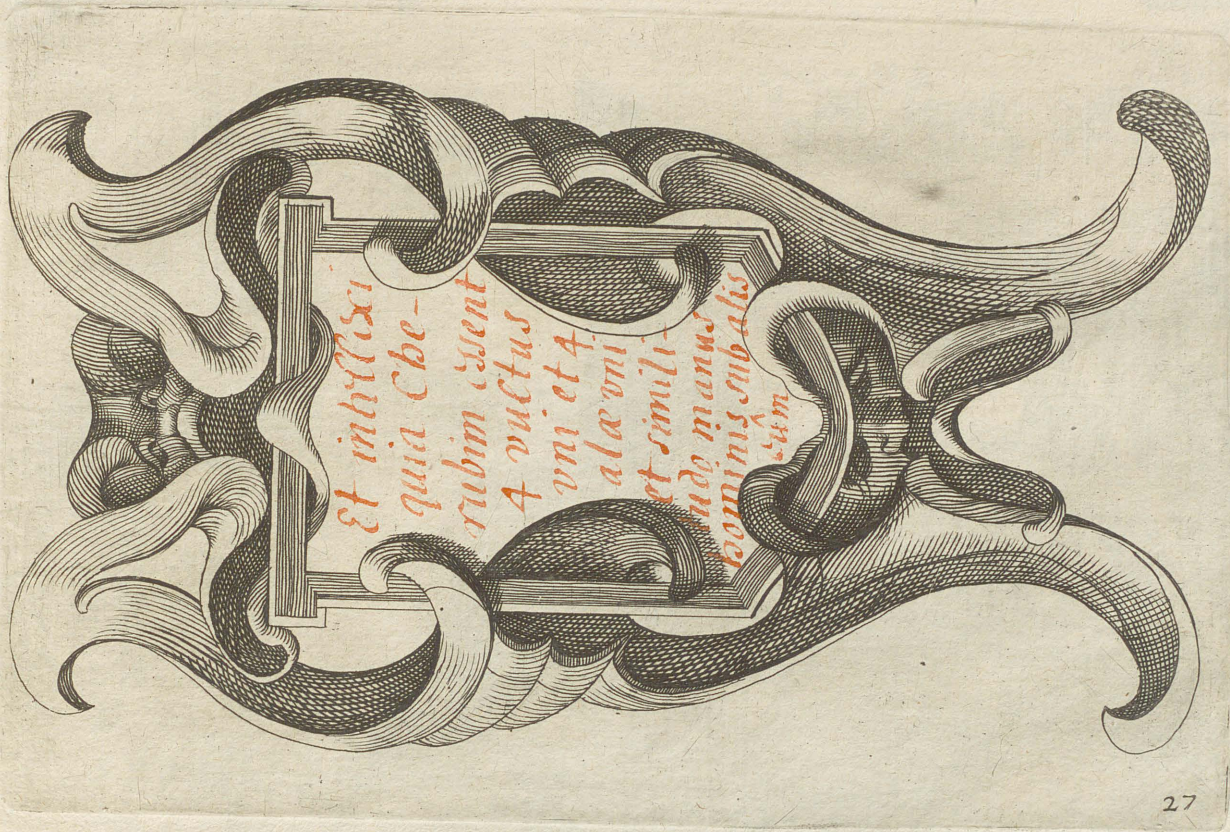 Et intellexi
quia Che-
rubim essent
4 vultus
vni et 4
alæ vni
et simili-
tudo manus
hominis sub alis
eorûm
27